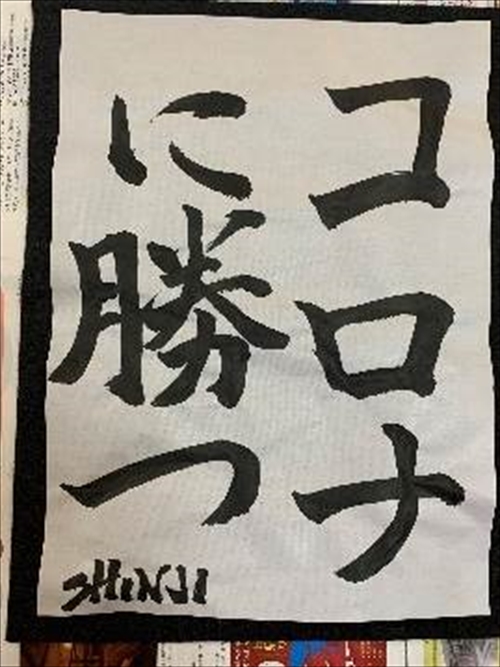 コロナ
に勝つ
SHINJI